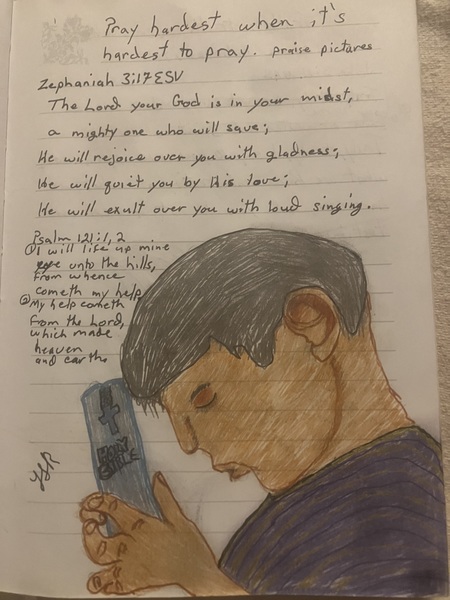 Pray hardest when it's
hardest to pray. praise pictures
Zephaniah 3:17 ESV
The Lord your God is in your midst,
a mighty one who will save;
He will rejoice over you with gladness;
He will quiet you by His love;
He will exult over you with loud singing.
Psalm 121:1,2
① I will life up mine
eye unto the hills,
from whence
cometh my help
② My help cometh
From the Lord,
which made
heaven
and earth
HOLY
BIBLE